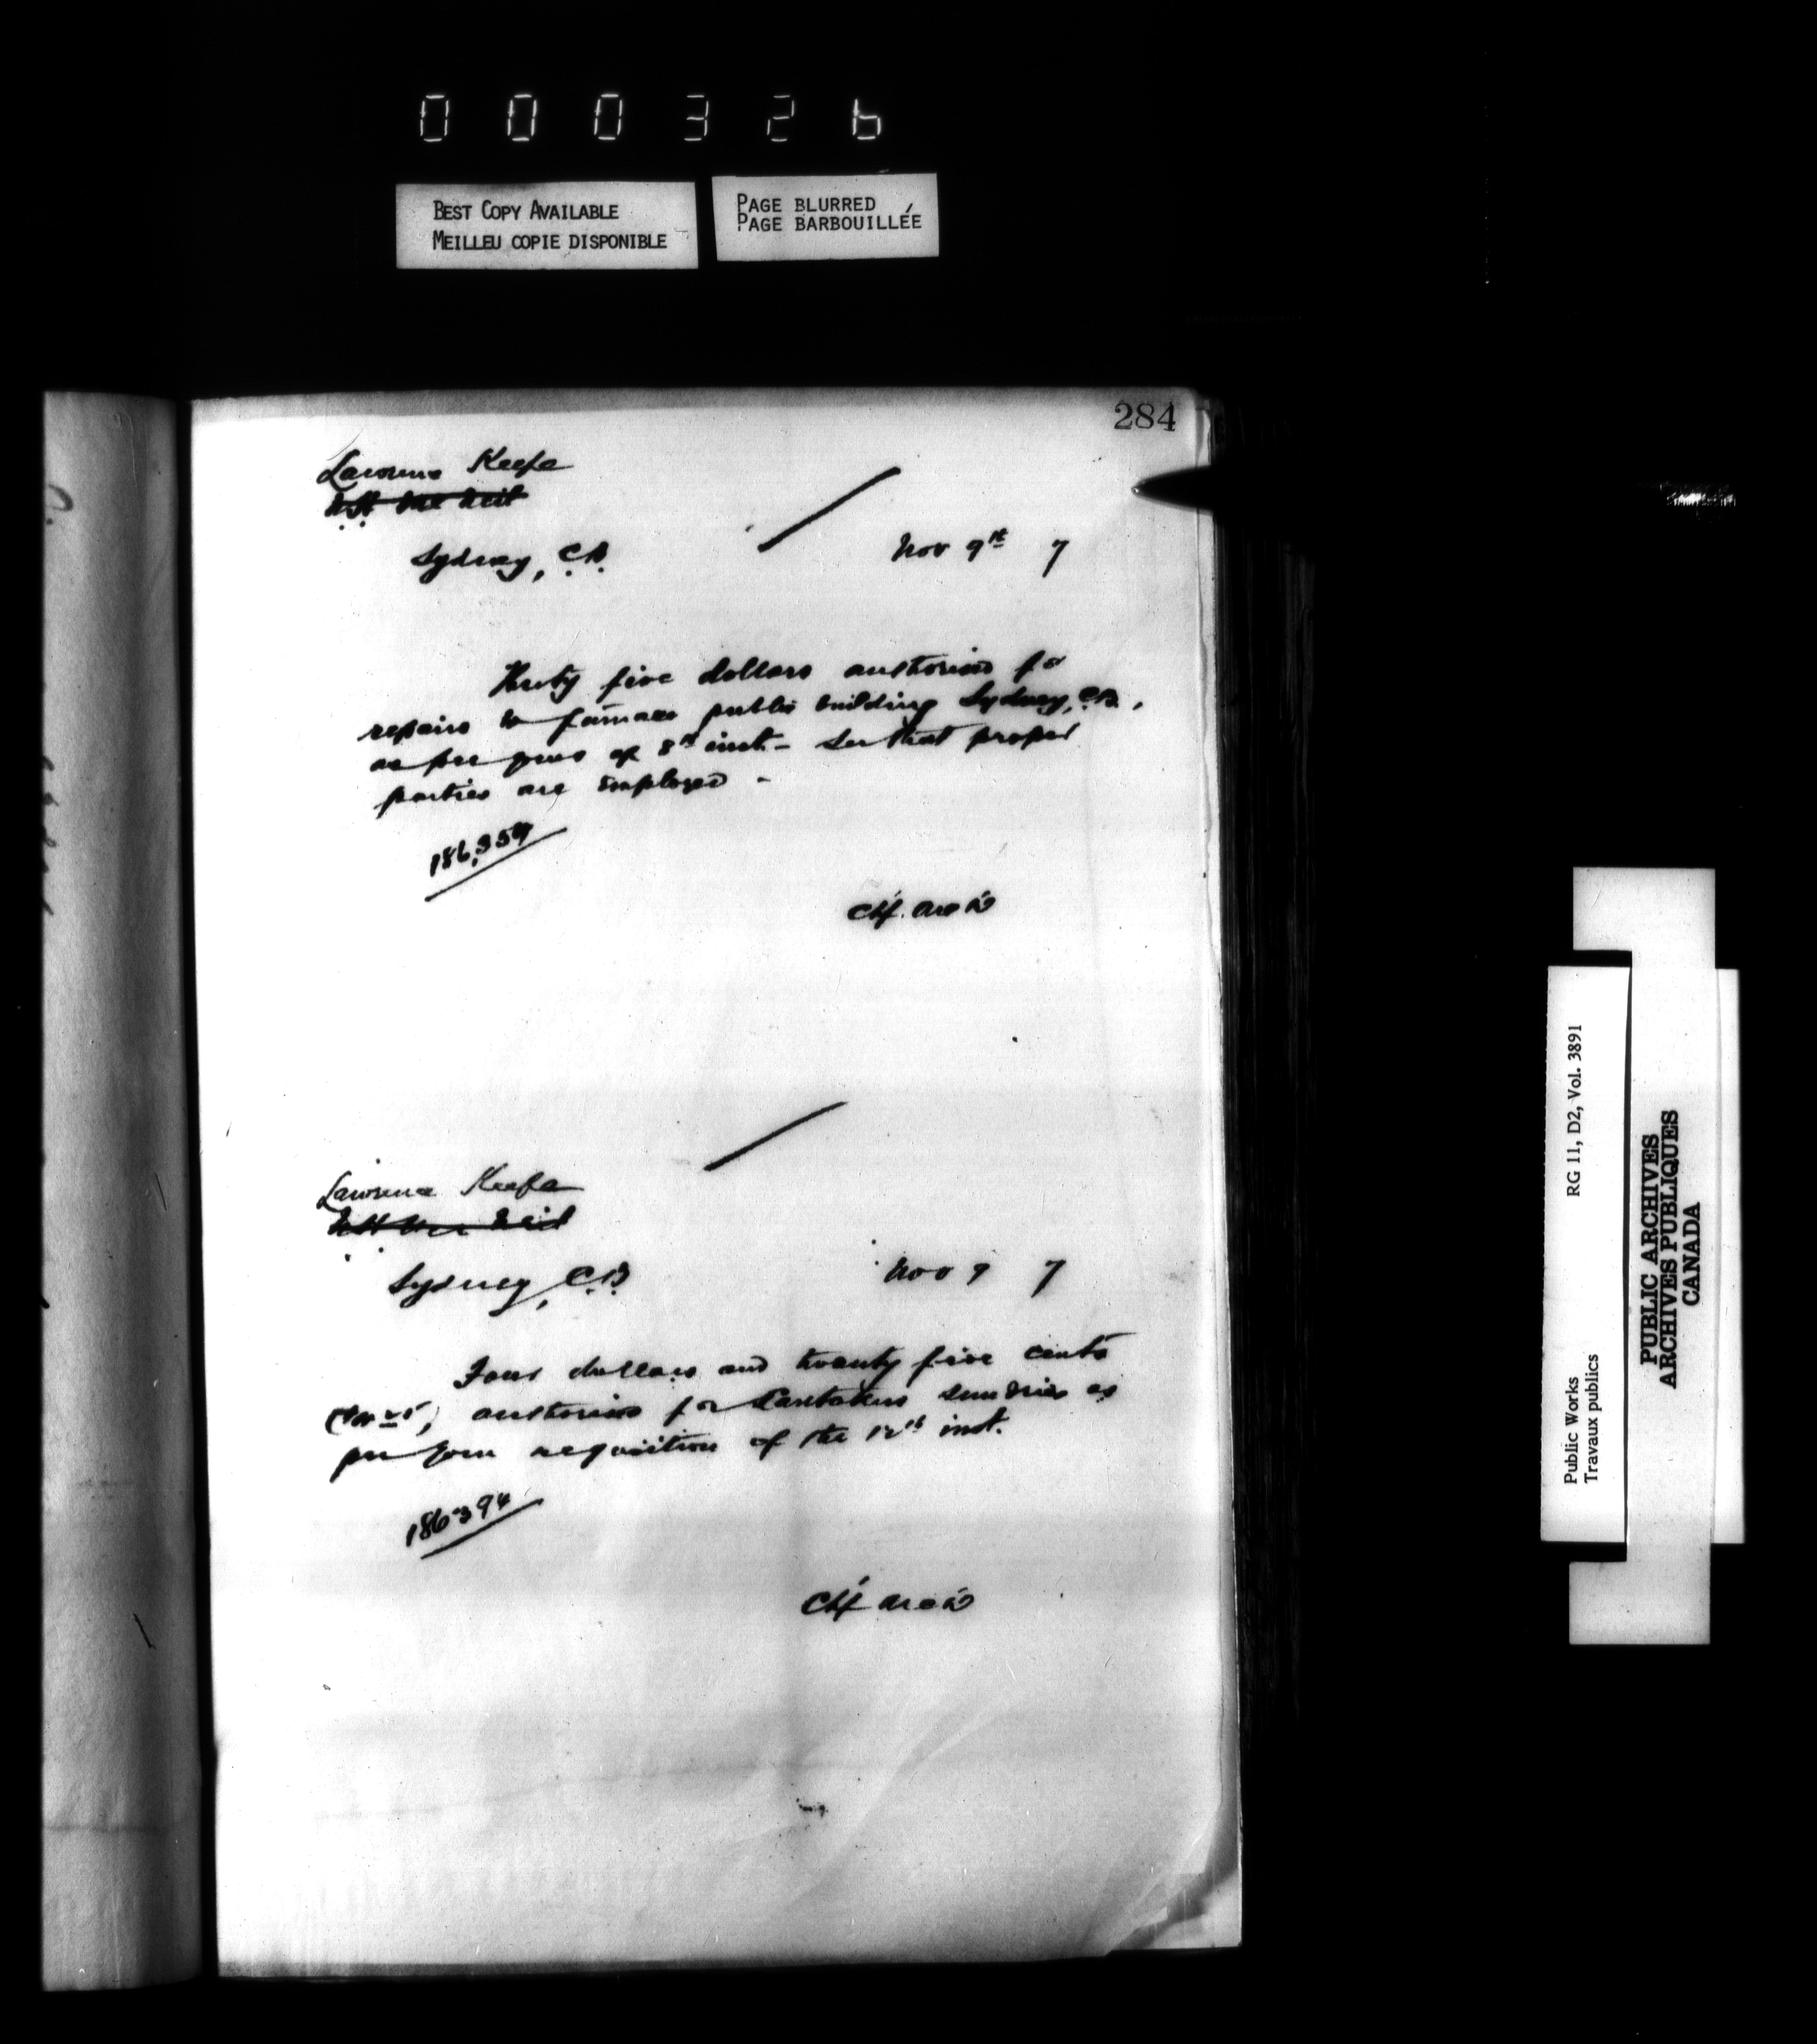 000326
BEST COPY AVAILABLE
MEILLEU COPIE DISPONIBLE
PAGE BLURRED
PAGE BARBOUILLÉE
284
Lawrence Keefe
Sydney, C.B.
Nov 9th 7
Thirty five dollars authorized for
repairs to furnace public building Sydney, C.B.,
as per yours of 8th inst - See that proper
parties are employed -
186,354
Chf. Arct
Lawrence Keefe
Sydney, C.B.
Nov 9 7
Four dollars and twenty five cents
authorized for Caretakers sundries as
per your requisition of the 12th inst.
186394
Chf Arct
Public Works
Travaux publics
RG 11, D2, Vol. 3891
PUBLIC ARCHIVES
ARCHIVES PUBLIQUES
CANADA